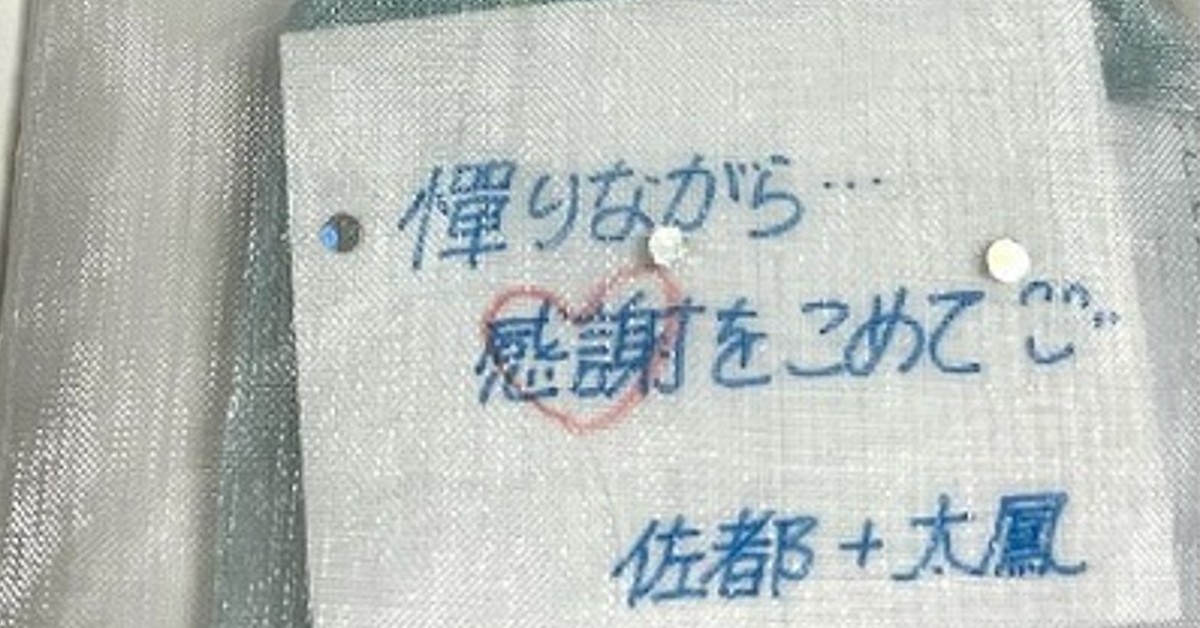 憚りながら…
感謝をこめて
佐都+太鳳